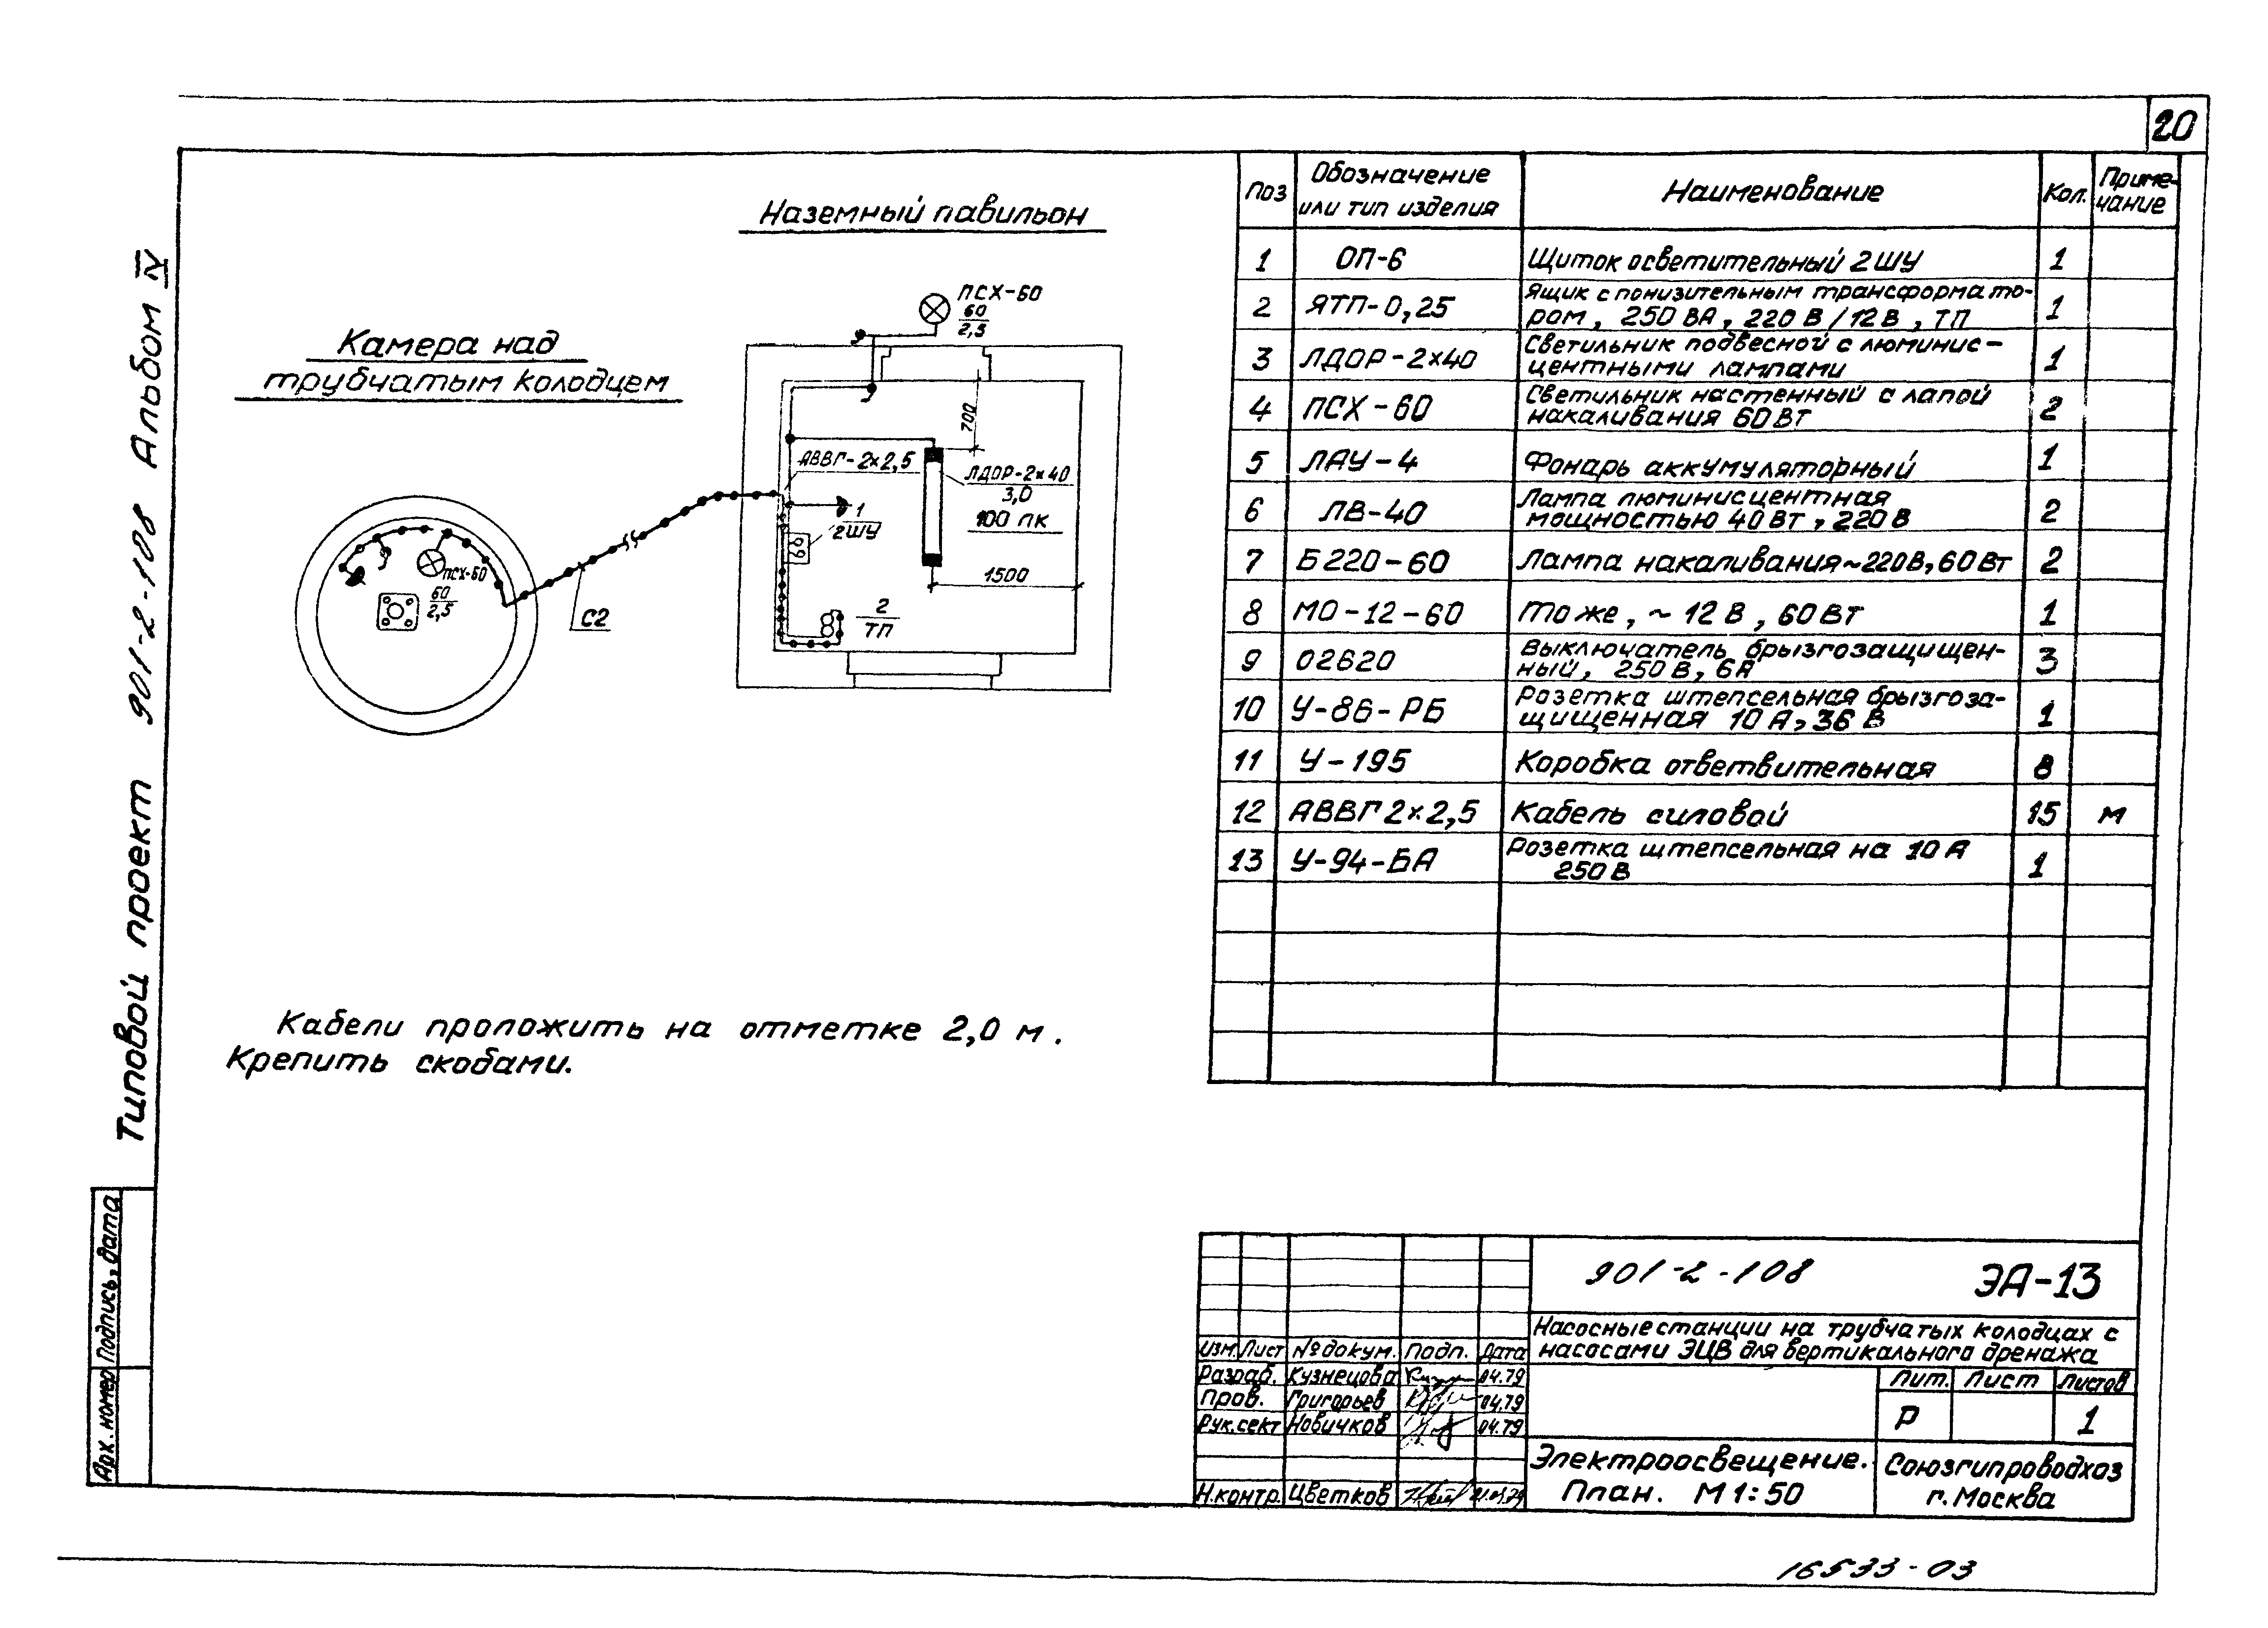 20
Типовой проект 901-2-108 Альбом IV
Наземный павильон
Камера над
трубчатым колодцем
ПСХ-60
60
2,5
700
АВВГ-2×2,5
ЛДОР-2×40
3,0
100 лк
1
2ШУ
1500
2
ТП
ПСХ-60
60
2,5
С2
Кабели проложить на отметке 2,0 м.
Крепить скобами.
Поз Обозначение или тип изделия Наименование Кол. Приме-чание
1 ОП-6 Щиток осветительный 2ШУ 1
2 ЯТП-0,25 Ящик с понизительным трансформато-
ром, 250 ВА, 220 В/12 В, ТП 1
3 ЛДОР-2×40 Светильник подвесной с люминис-
центными лампами 1
4 ПСХ-60 Светильник настенный с лапой
накаливания 60 Вт 2
5 ЛАУ-4 Фонарь аккумуляторный 1
6 ЛВ-40 Лампа люминисцентная
мощностью 40 Вт, 220 В 2
7 Б220-60 Лампа накаливания ~220В, 60 Вт 2
8 МО-12-60 То же, ~ 12 В, 60 Вт 1
9 02620 Выключатель брызгозащищен-
ный, 250 В, 6А 3
10 У-86-РБ Розетка штепсельная брызгоза-
щищенная 10 А, 36 В 1
11 У-195 Коробка ответвительная 8
12 АВВГ 2×2,5 Кабель силовой 15 м
13 У-94-БА Розетка штепсельная на 10 А
250 В 1
Арх. номер Подпись, дата
901-2-108 ЭА-13
Насосные станции на трубчатых колодцах с
насосами ЭЦВ для вертикального дренажа
Изм. Лист № докум. Подп. Дата
Разраб. Кузнецова 04.79
Пров. Григорьев 04.79
Рук.сект Новичков 04.79
Н.контр. Цветков
Лит. Лист Листов
Р 1
Электроосвещение.
План. М 1:50
Союзгипроводхоз
г. Москва
16533-03